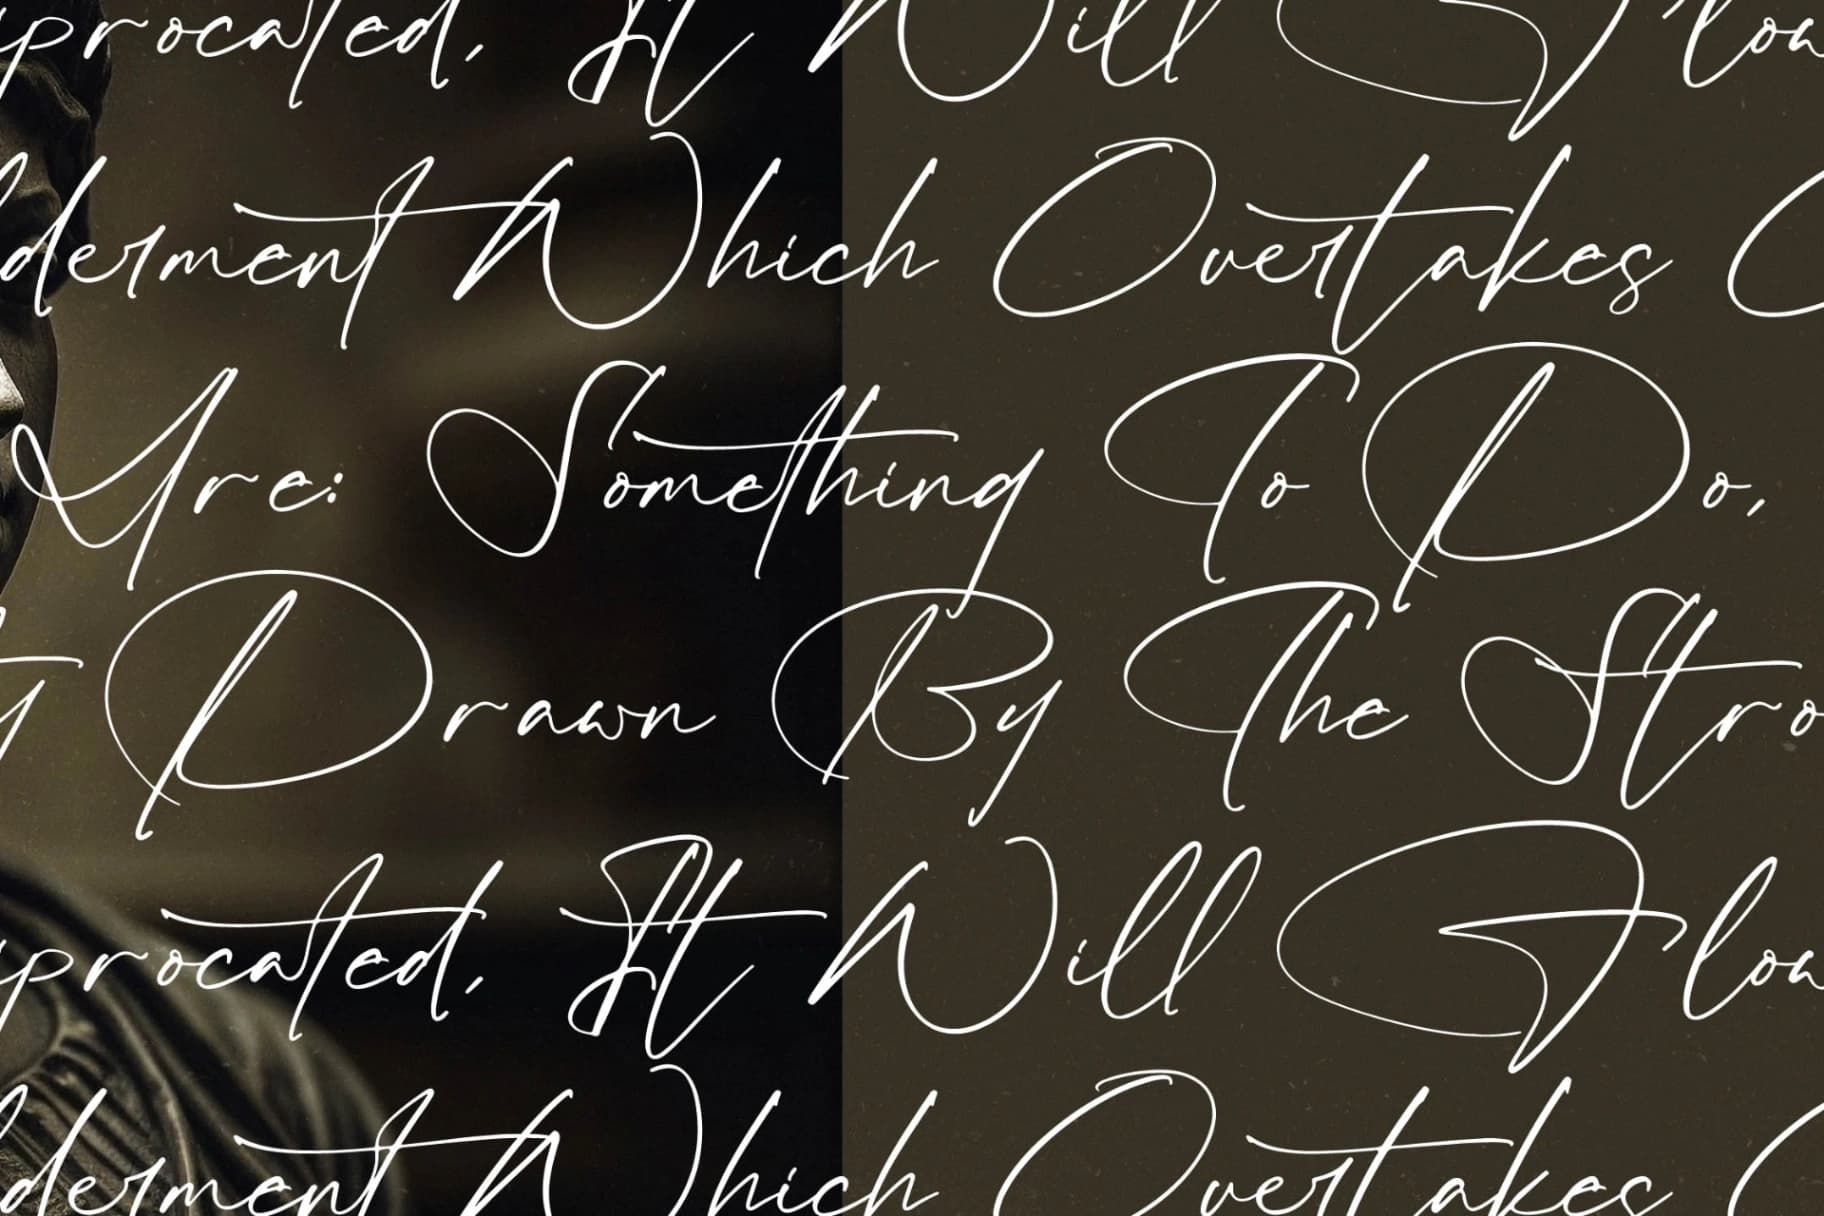 procated, It Will Flow
lderment Which Overtakes O
Are: Something To Do,
y Drawn By The Stro
procated, It Will Flow
lderment Which Overtakes O